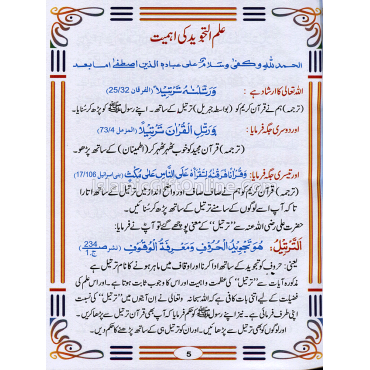 علم التجوید کی اہمیت
الحمد للہ و کفیٰ وسلام علی عبادہ الذین اصطفیٰ اما بعد
اللہ تعالیٰ کا ارشاد ہے : وَرَتَّلْنٰهُ تَرْتِیْلًا (الفرقان 25/32)
(ترجمہ) ہم نے قرآن کریم کو (بواسطہ جبریل) ترتیل کے ساتھ۔ اپنے رسول ﷺ کو پڑھ کر سُنایا۔
اور دوسری جگہ فرمایا : وَرَتِّلِ الْقُرْاٰنَ تَرْتِیْلًا (المزمل 73/4)
(ترجمہ) قرآن مجید کو خوب ٹھہر ٹھہر کر (اطمینان) کے ساتھ پڑھو۔
اور تیسری جگہ فرمایا : وَقُرْاٰنًا فَرَقْنٰهُ لِتَقْرَاَهٗ عَلَی النَّاسِ عَلٰی مُكْثٍ (بنی اسرائیل 17/106)
(ترجمہ) قرآن کریم کو ہم نے صاف صاف اور واضح انداز میں ترتیل کے ساتھ اتارا تا
کہ آپ اسے لوگوں کے سامنے ترتیل کے ساتھ پڑھ کر سُنائیں۔
حضرت علی رضی اللہ عنہ سے ”ترتیل“ کے معنی پوچھے گئے تو آپ نے فرمایا
اَلتَّرْتِیْلُ : هُوَ تَجْوِیْدُ الْحُرُوْفِ وَمَعْرِفَةُ الْوُقُوْفِ (نشر ص 234 ج 1)
یعنی : حروف کو تجوید کے ساتھ ادا کرنا اور اوقاف میں ماہر ہونے کا نام ترتیل ہے
مذکورہ آیات سے ”ترتیل“ کی عظمت و اہمیت اور اس کا وجوب ثابت ہوتا ہے۔ اور اس علم کی
فضیلت کے لیے اتنی بات کافی ہے کہ اللہ سبحانہ وتعالیٰ نے ان آیتوں میں ”ترتیل“ کی نسبت
اپنی طرف فرمائی ہے۔ نیز اپنے رسول ﷺ کو حکم فرمایا کہ آپ بھی قرآن ترتیل سے پڑھیں
اور لوگوں کو بھی ترتیل سے سُنائیں۔ اور ان لوگوں کو ترتیل ہی کے ساتھ پڑھنے کا حکم دیں۔
5